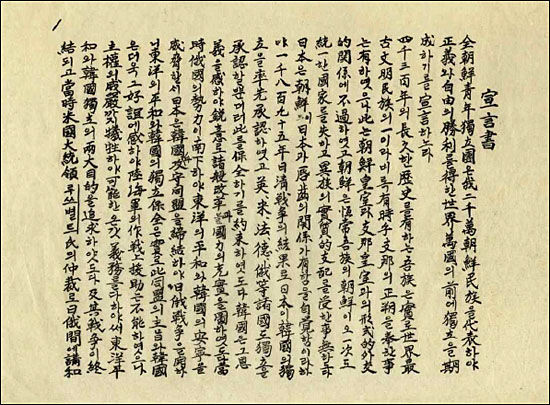 1
宣言書
全朝鮮青年獨立團은我二千萬朝鮮民族을代表하야
正義와自由의勝利를得한世界萬國의前에獨立을期
成하기를宣言하노라
四千三百年의長久한歷史를有하는吾族은實로世界最
古文明民族의一이라비록有時乎支那의正朔을奉한事
는有하엿으나此는朝鮮皇室과支那皇室과의形式的外交
的關係에不過하엿고朝鮮은恒常吾族의朝鮮이오一次도
統一한國家를失하고異族의實質的支配를受한事無하도다
日本은朝鮮이日本과唇齒의關係가有함을自覺함이라하
야一千八百九十五年日清戰爭의結果로日本이韓國의獨
立을率先承認하엿고英米法德俄等諸國도獨立을
承認할뿐더러此를保全하기를約束하엿도다韓國은그恩
義를感하야銳意로諸般改革과國力의充實을圖하엿도다當
時俄國의勢力이南下하야東洋의平和와韓國의安寧을
威脅할새日本은韓國과攻守同盟을締結하야日俄戰爭을開하
니東洋의平和와韓國의獨立保全은實로此同盟의主旨와韓國
은더욱그好誼에感하야陸海軍의作戰上援助는不能하엿으나
主權의威嚴까지犧牲하야可能한온갓義務를다하야써東洋平
和와韓國獨立의兩大目的을追求하얏도다及其戰爭이終
結되고當時米國大統領루쓰벨트氏의仲裁로日俄間에講和